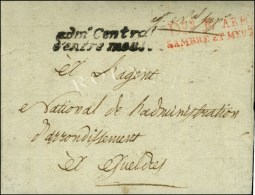 adm.on Central
d'entre meuse
ARM.
SAMBRE ET MEUSE
A l'agent
National de l'administration
d'arrondissement
A Gueldres